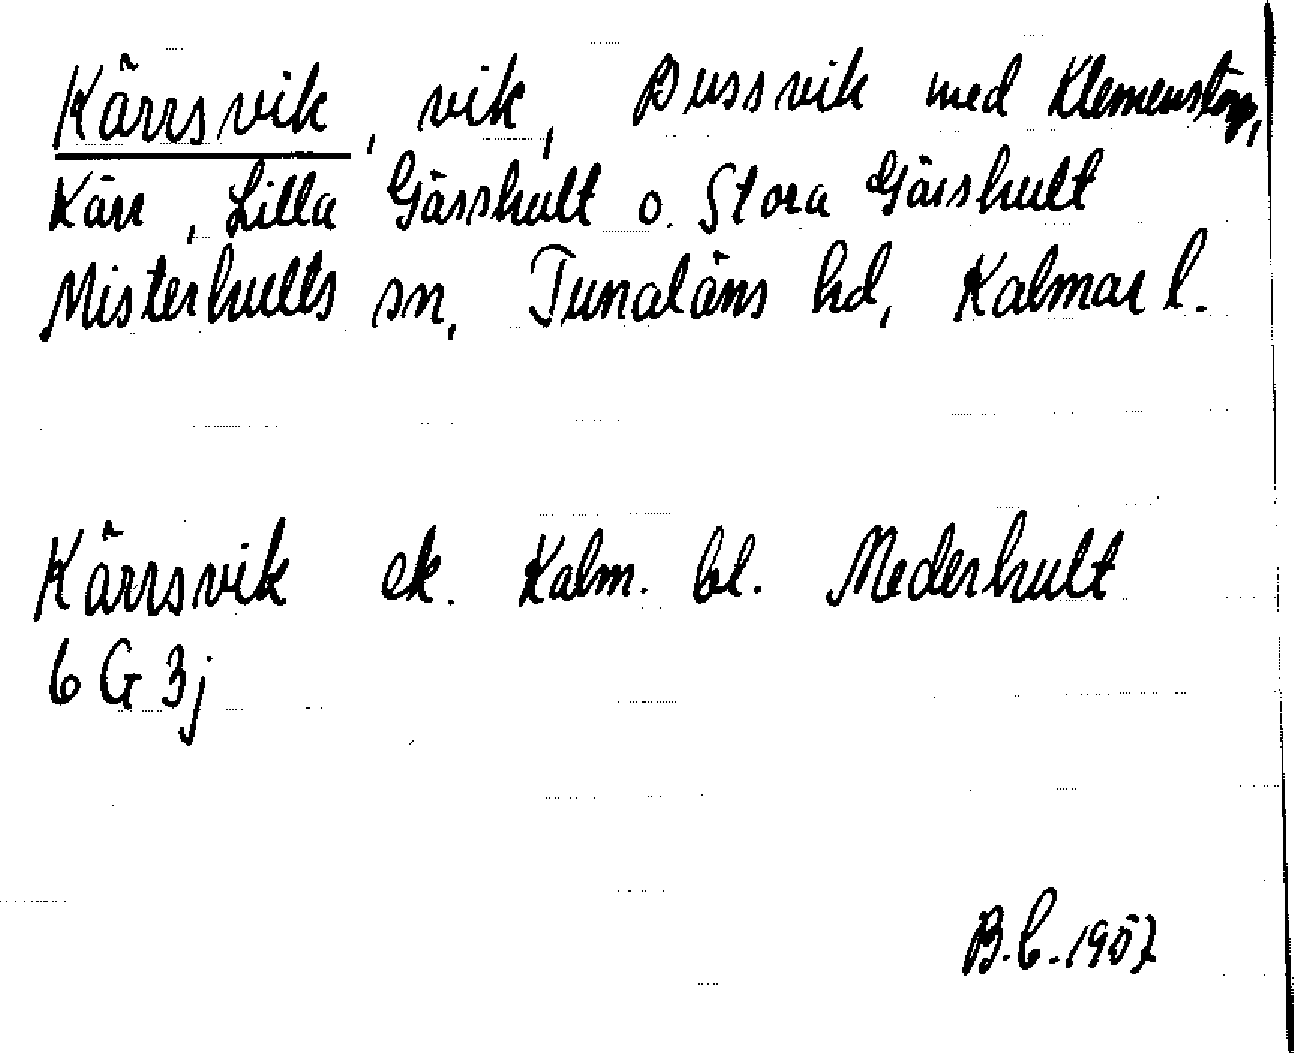 Kärrsvik, vik, Bussvik med Klemenstorp,
Kärr, Lilla Gässhult o. Stora Gässhult
Misterhults sn, Tunaläns hd, Kalmar l.
Kärrsvik ek. Kalm. bl. Mederhult
6 G 3j
B.C. 1957